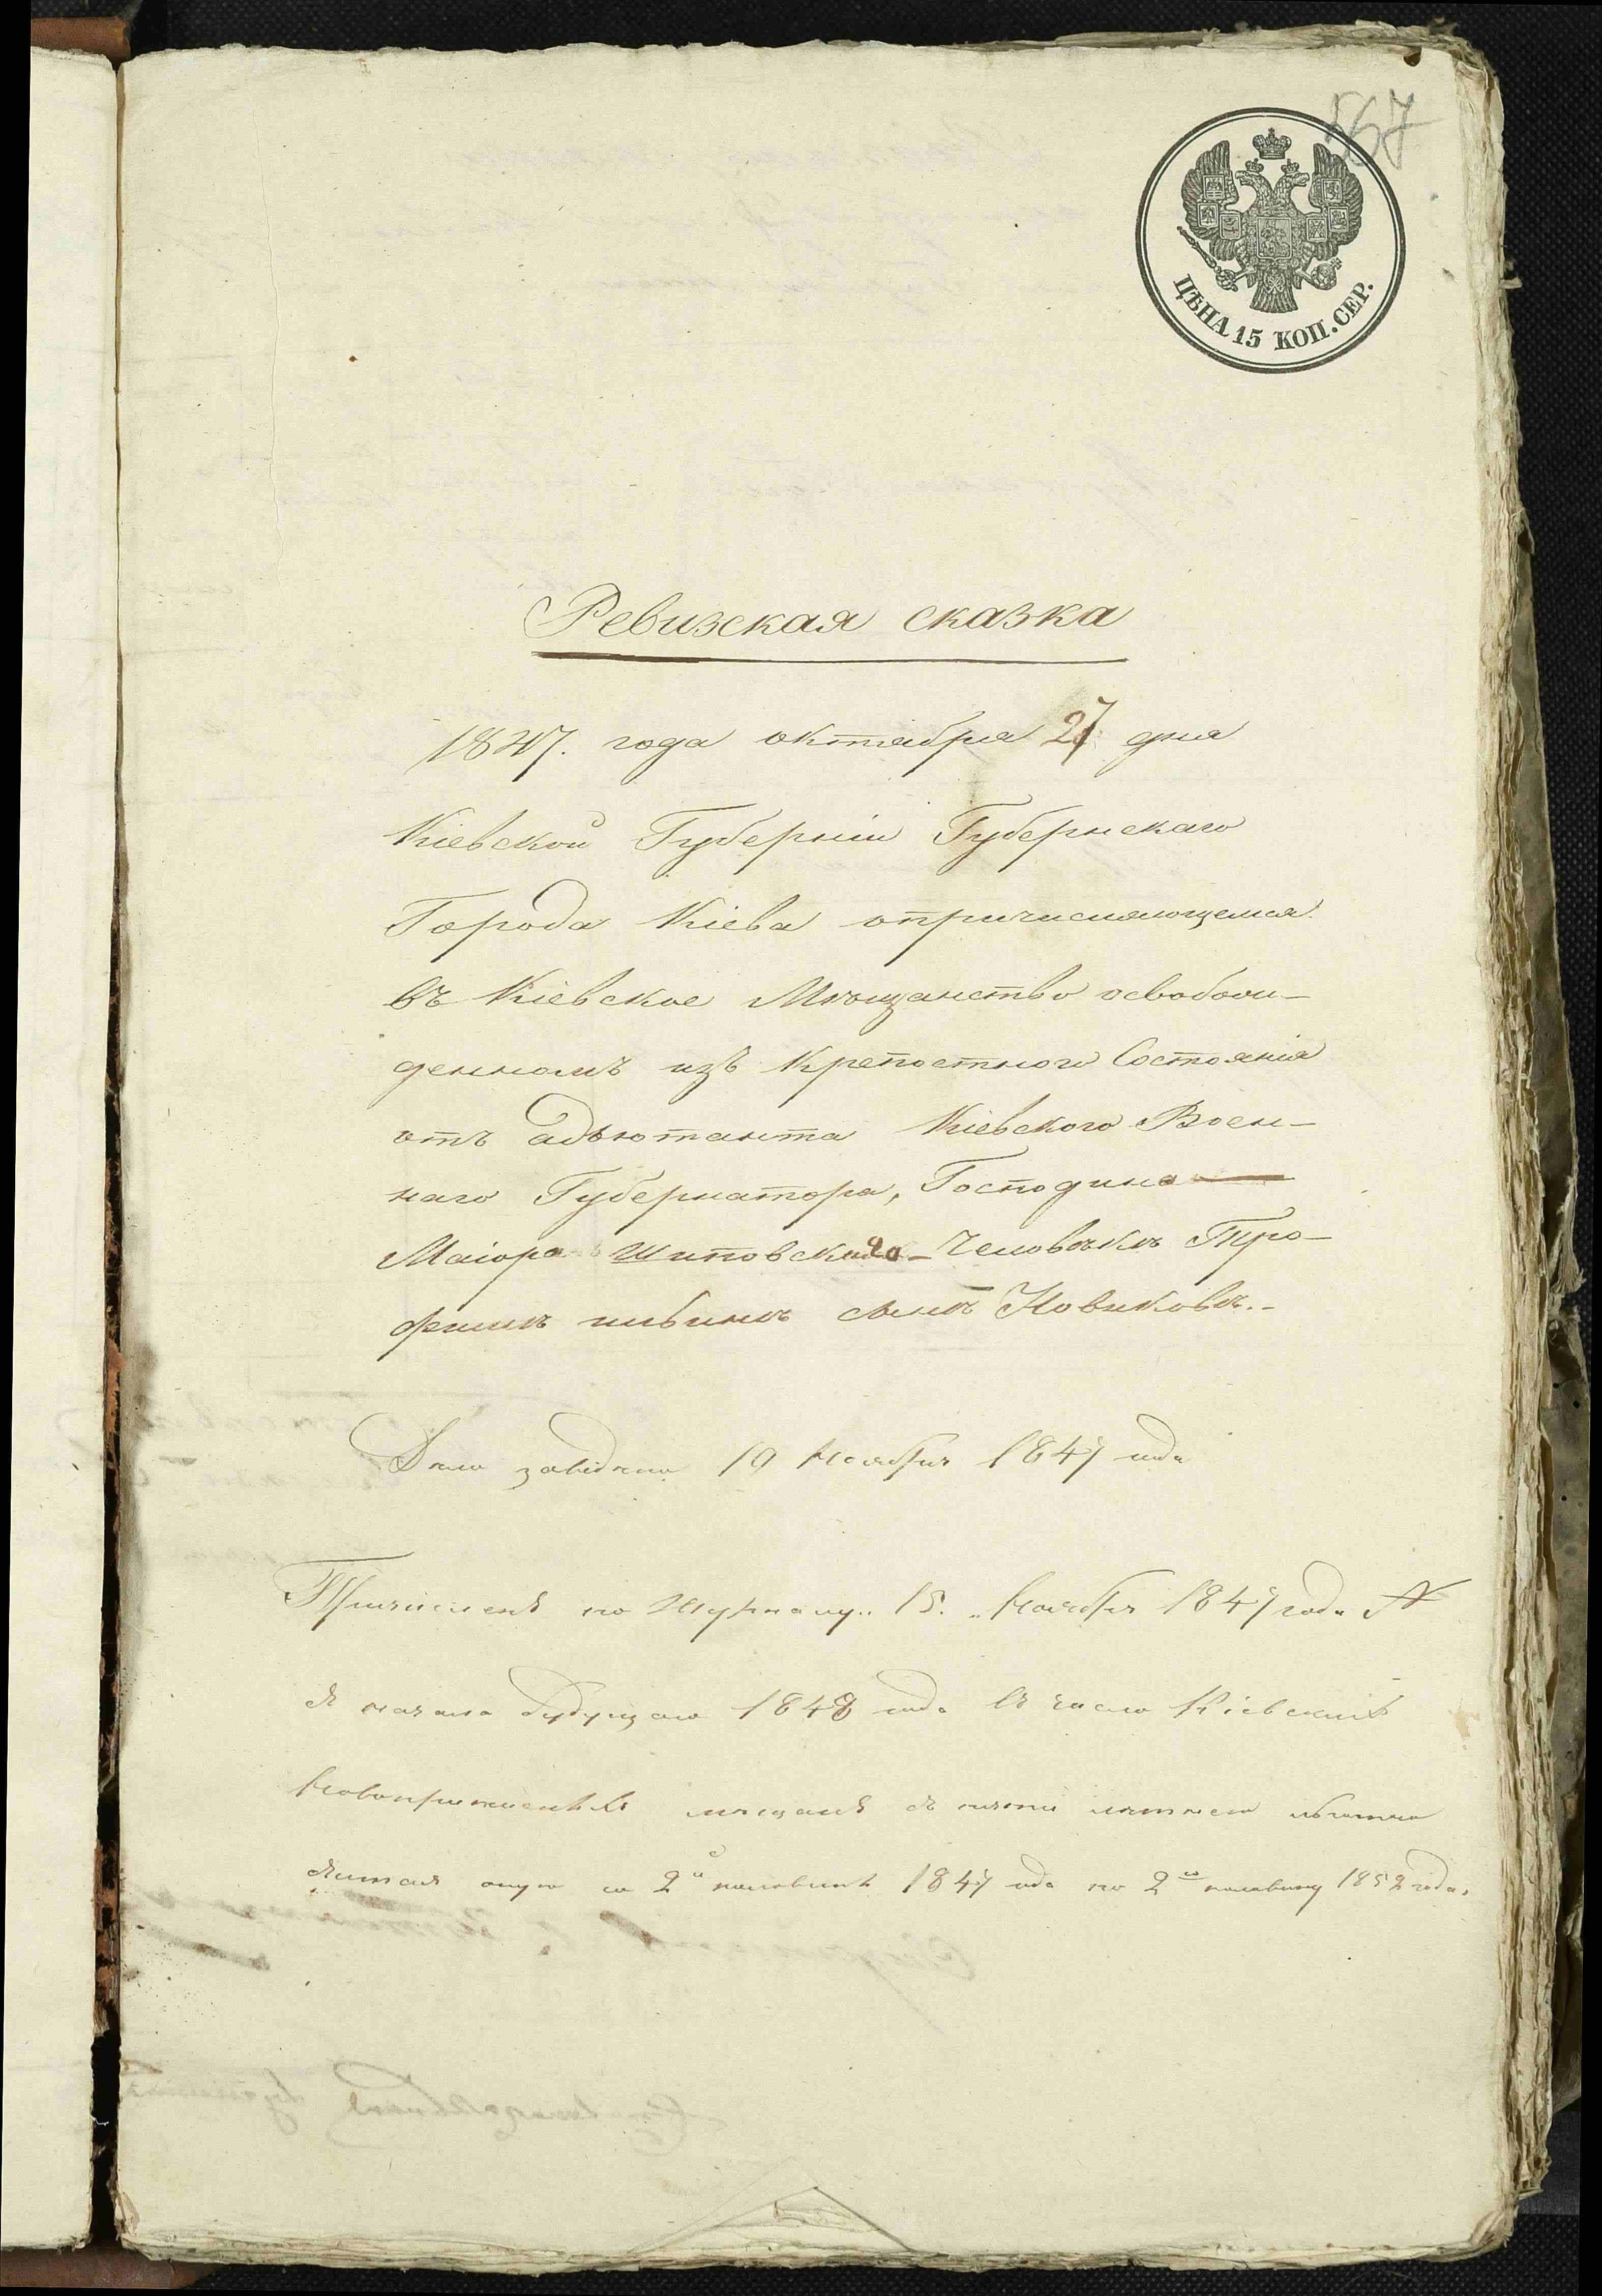 567
ЦѢНА 15 КОП. СЕР.
Ревизская сказка
1847. года октября 27 дня
Кіевской Губерніи Губернскаго
Города Кіева опричисляющемся
въ Кіевское Мѣщанство освобож-
денномъ изъ Крепостного Состоянія
отъ адъютанта Кіевского Воен-
наго Губернатора, Господина
Маіора Шиповскаго Человѣкѣ Тро-
фимѣ сынѣ Новиковѣ.
Дело заведено 10 Ноября 1847 года
Причисленъ по Журналу 15. Ноября 1847 года
съ начала будущаго 1848 года въ число Кіевскихъ
Новопричисленныхъ мѣщанъ съ пяти лѣтнею льготою
считая оную со 2й половины 1847 года по 2ю половину 1852 года.